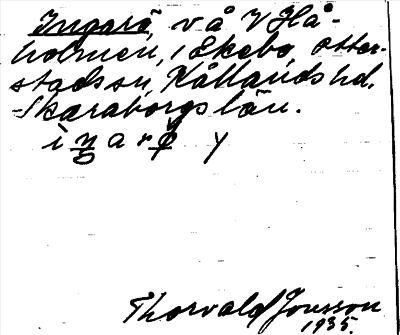 Ingarö, v å V Hå-
holmen, 1 Ekebo, Otter-
stads sn, Kållands hd.
Skaraborgs län.
Thorvald Jonsson
1935.